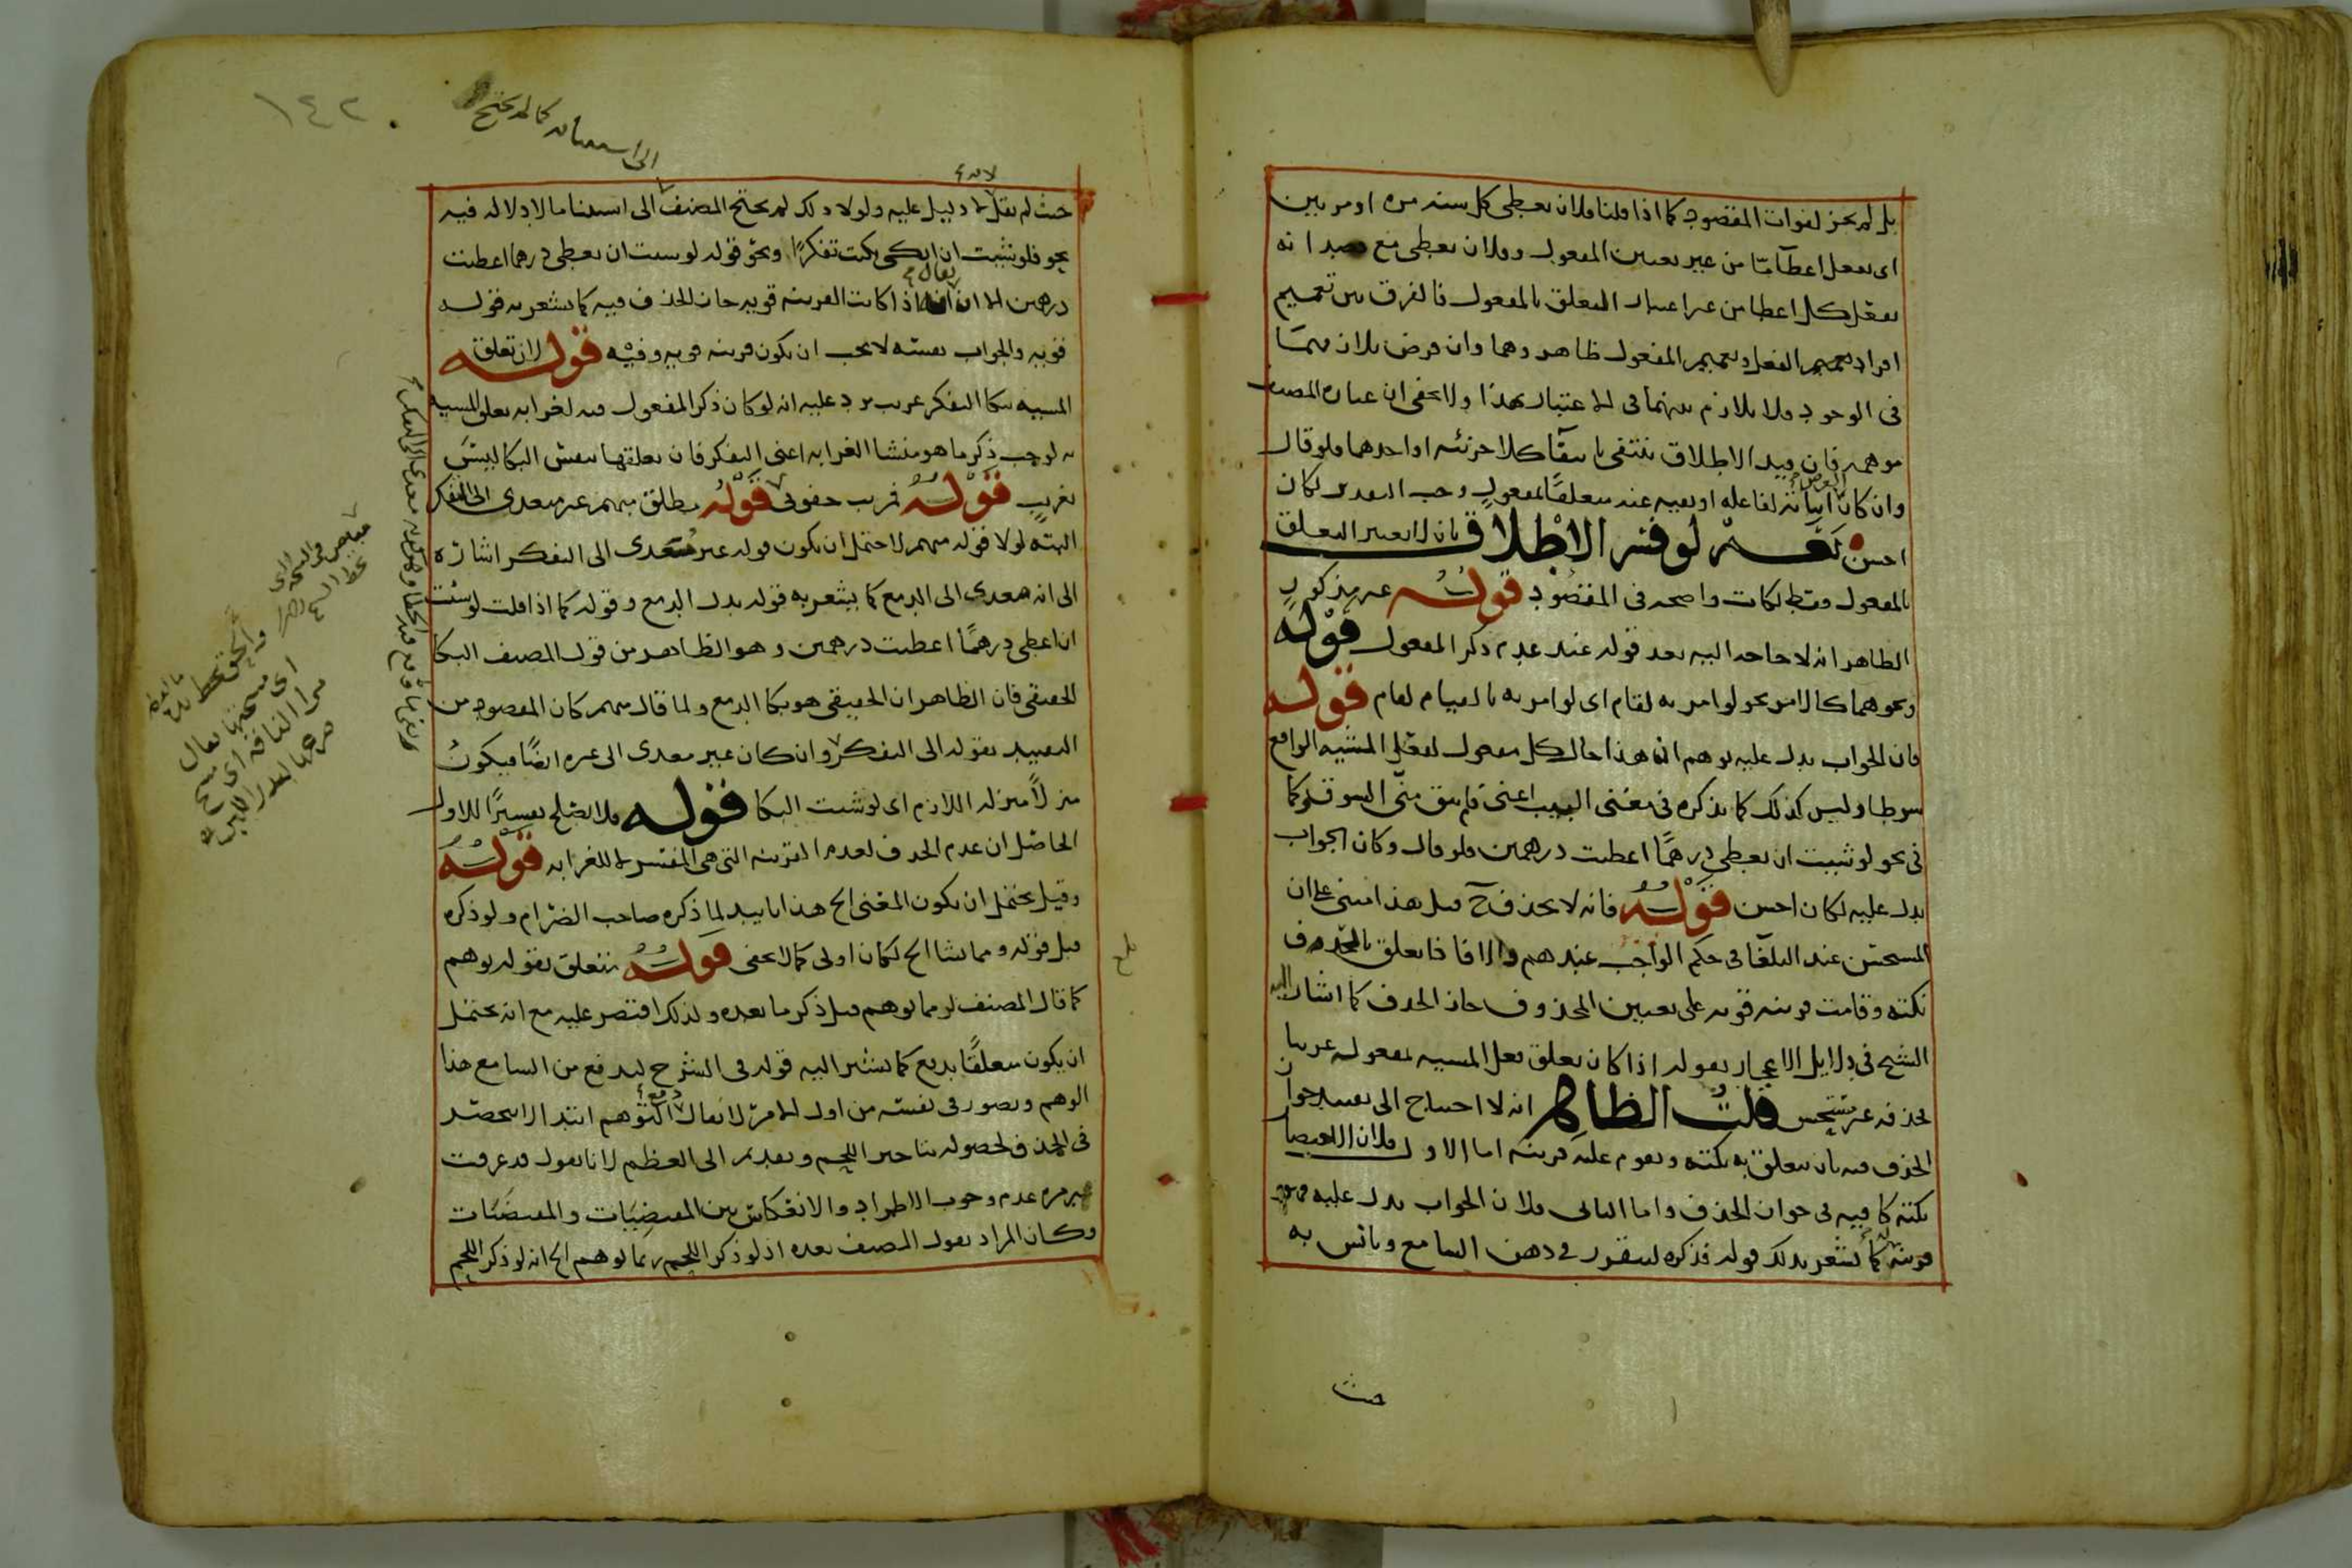 بل لم يجز لفوات المقصود كما اذا قلنا فلان يعطى كل سنه مرة او مرتين
اى يفعل اعطآ ما من غير تعيين المفعول وفلان يعطى مع قصد انه
يفعل كل اعطا من غير اعتبار التعلق بالمفعول فالفرق بين تعميم
افراد الفعل وتعميم المفعول ظاهر وهما وان فرض تلازمهما
فى الوجود فلا تلازم بينهما فى الاعتبار هذا ولا يخفى ان عبارة المصنف
موهمه فان قيد الاطلاق ينتفى بانتفآ كلا جزئيه او احدهما فلو قال
وان كان اثباته لفاعله او نفيه عنه متعلقًا بمفعول وجب التقدير لكان
احسن نعم لو فسر الاطلاق بان لا يعتبر التعلق
بالمفعول فقط لكانت واضحه فى المقصود قوله غير مذكور
الظاهر انه لا حاجه اليه بعد قوله عند عدم ذكر المفعول قوله
ونحوهما كالامر نحو لو امر به لقام اى لو امر به بالقيام لقام قوله
فان الجواب يدل عليه يوهم ان هذا حال كل مفعول لفعل المشيه الواقع
شرطا وليس كذلك كما يذكره فى معنى البيت اعنى فلم يبق منى الشوق وكما
فى نحو لو شيت ان يعطى درهمًا اعطيت درهمين فلو قال وكان الجواب
يدل عليه لكان احسن قوله فانه لا يحذف ح قيل هذا مبنى على ان
المستحسن عند البلغآ فى حكم الواجب عندهم والا فاذا تعلق بالحذف
نكته وقامت قرينه قويه على تعيين المحذوف جاز الحذف كما اشار اليه
الشيخ فى دلايل الاعجاز بقوله اذا كان تعلق فعل المشيه بمفعوله غريبا
حذفه غير مستحسن قلت الظاهر انه لا احتياج الى تقييد جواز
الحذف فيه بان يتعلق به نكته ويقوم عليه قرينه اما الاول فلان الاختصار
نكته كافيه فى جواز الحذف واما الثانى فلان الجواب يدل عليه فهو
قرينه كما يشعر بذلك قوله فذكره ليتقرر فى ذهن السامع ويانس به
حيث
١٤٢
حيث لم يقل لا دليل عليه ولولا ذلك لم يحتج المصنف الى استثنا ما لا دلاله فيه
نحو فلو شيت ان ابكى بكيت تفكرًا ونحو قوله لو شيت ان يعطى درهما اعطيت
درهمين الا ان يقال اذا كانت القرينه قويه جاز الحذف فيه كما يشعر به قوله
قويه والجواب بنفسه لا يجب ان يكون قرينه قويه وفيه قوله لان تعلق
المشيه ببكا التفكر غريب يرد عليه انه لو كان ذكر المفعول فيه لغرابه تعلق المشيه
به لوجب ذكر ما هو منشا الغرابه اعنى التفكر فان تعلقها بنفس البكا ليس
بغريب قوله قوله مطلق مبهم غير معدى الى التفكر
البته لولا قوله مبهم لاحتمل ان يكون قوله غير معدى الى التفكر اشارة
الى انه معدى الى الدمع كما يشعر به قوله بدل الدمع وقوله كما اذا قلت لو شئت
ان اعطى درهمًا اعطيت درهمين وهو الظاهر من قول المصنف البكا
الحقيقى فان الظاهر ان الحقيقى هو بكا الدمع ولما قال مبهم كان المقصود من
التقييد بقوله الى التفكر وان كان غير معدى الى غيره ايضًا فيكون
منزلًا منزله اللازم اى لو شيت البكا قوله فلا يصلح تفسيرًا للاول
الحاصل ان عدم الحذف لعدم القرينه التى هى المفسر لا للغرابه قوله
وقيل يحتمل ان يكون المعنى الخ هذا تاييد لما ذكره صاحب الضرام ولو ذكره
قبل قوله ومما نشا الخ لكان اولى كما لا يخفى قوله متعلق بقوله يوهم
كما قال المصنف لربما يوهم قبل ذكر ما بعده ولذلك اقتصر عليه مع انه يحتمل
ان يكون متعلقًا بدفع كما يشير اليه قوله فى الشرح ليدفع من السامع هذا
الوهم ويصور فى نفسه من اول الامر لا يقال دفع التوهم ابتدا لا ينحصر
فى الحذف لحصوله بتاخير اللحم وتقديم الى العظم لانا نقول قد عرفت
غير مره عدم وجوب الاطراد والانعكاس بين المقتضِيات والمقتضَيات
وكان المراد بقول المصنف بعده اذ لو ذكر اللحم ربما يوهم الخ انه لو ذكر اللحم